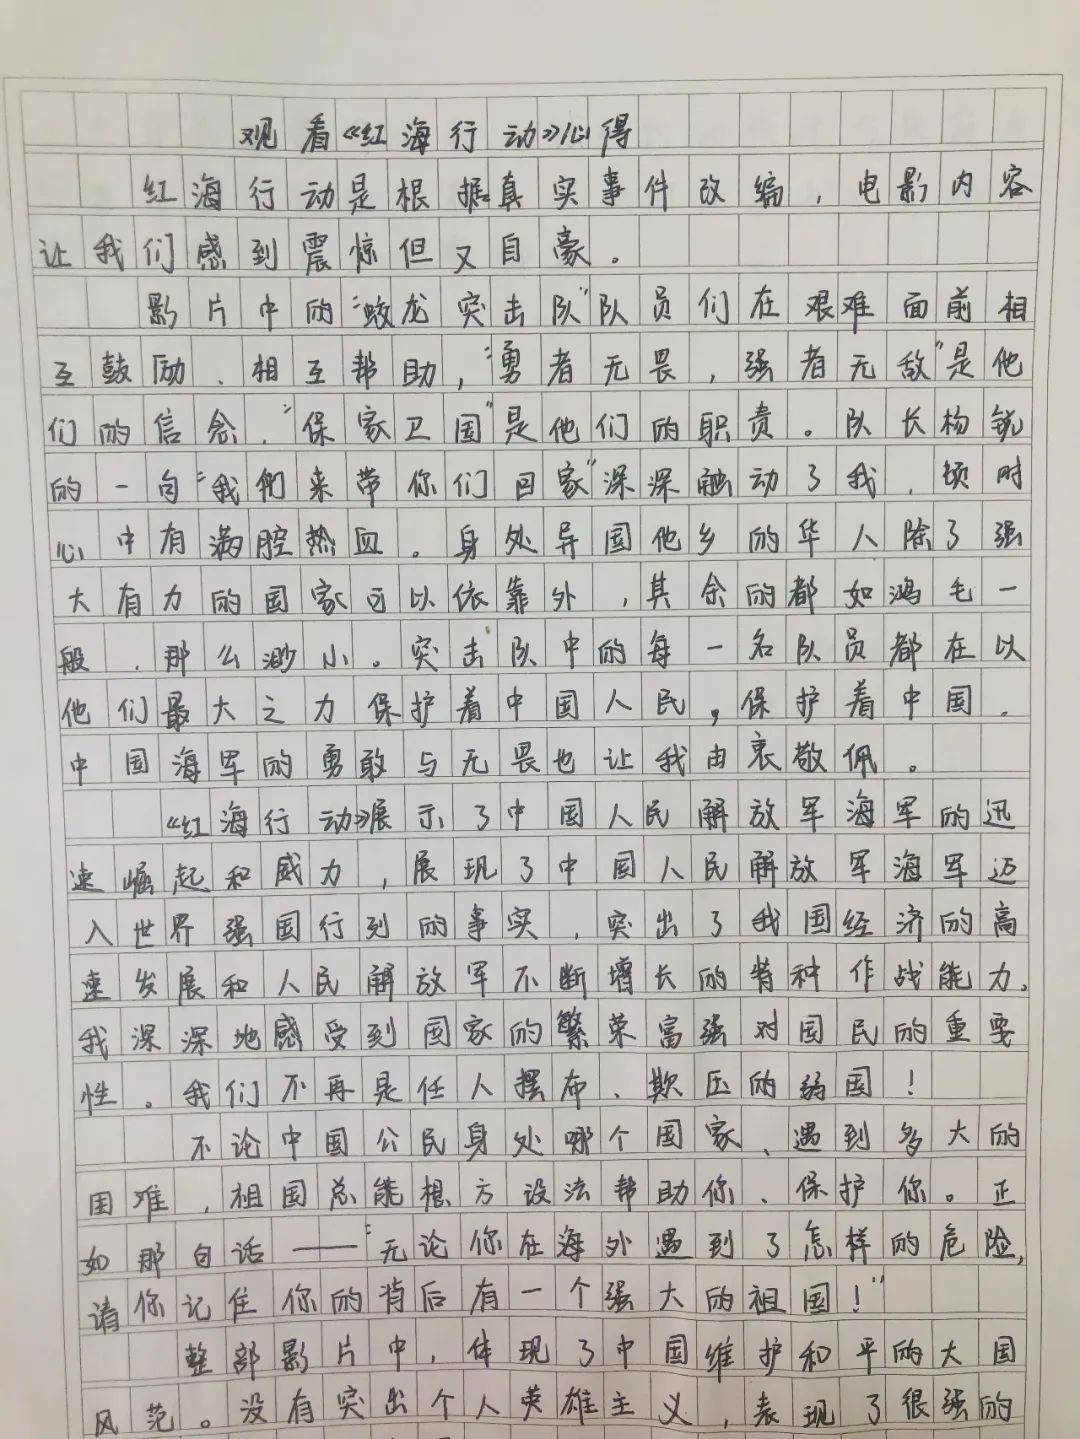 观看《红海行动》心得
红海行动是根据真实事件改编，电影内容
让我们感到震惊但又自豪。
影片中的“蛟龙突击队”队员们在艰难面前相
互鼓励、相互帮助，“勇者无畏，强者无敌”是他
们的信念，“保家卫国”是他们的职责。队长杨锐
的一句“我们来带你们回家”深深触动了我，顷时
心中有满腔热血。身处异国他乡的华人除了强
大有力的国家可以依靠外，其余的都如鸿毛一
般，那么渺小。突击队中的每一名队员都在以
他们最大之力保护着中国人民，保护着中国。
中国海军的勇敢与无畏也让我由衷敬佩。
《红海行动》展示了中国人民解放军海军的迅
速崛起和威力，展现了中国人民解放军海军迈
入世界强国行列的事实，突出了我国经济的高
速发展和人民解放军不断增长的特种作战能力。
我深深地感受到国家的繁荣富强对国民的重要
性。我们不再是任人摆布、欺压的弱国！
不论中国公民身处哪个国家、遇到多大的
困难，祖国总能想方设法帮助你、保护你。正
如那句话——“无论你在海外遇到了怎样的危险，
请你记住你的背后有一个强大的祖国！”
整部影片中，体现了中国维护和平的大国
风范。没有突出个人英雄主义，表现了很强的